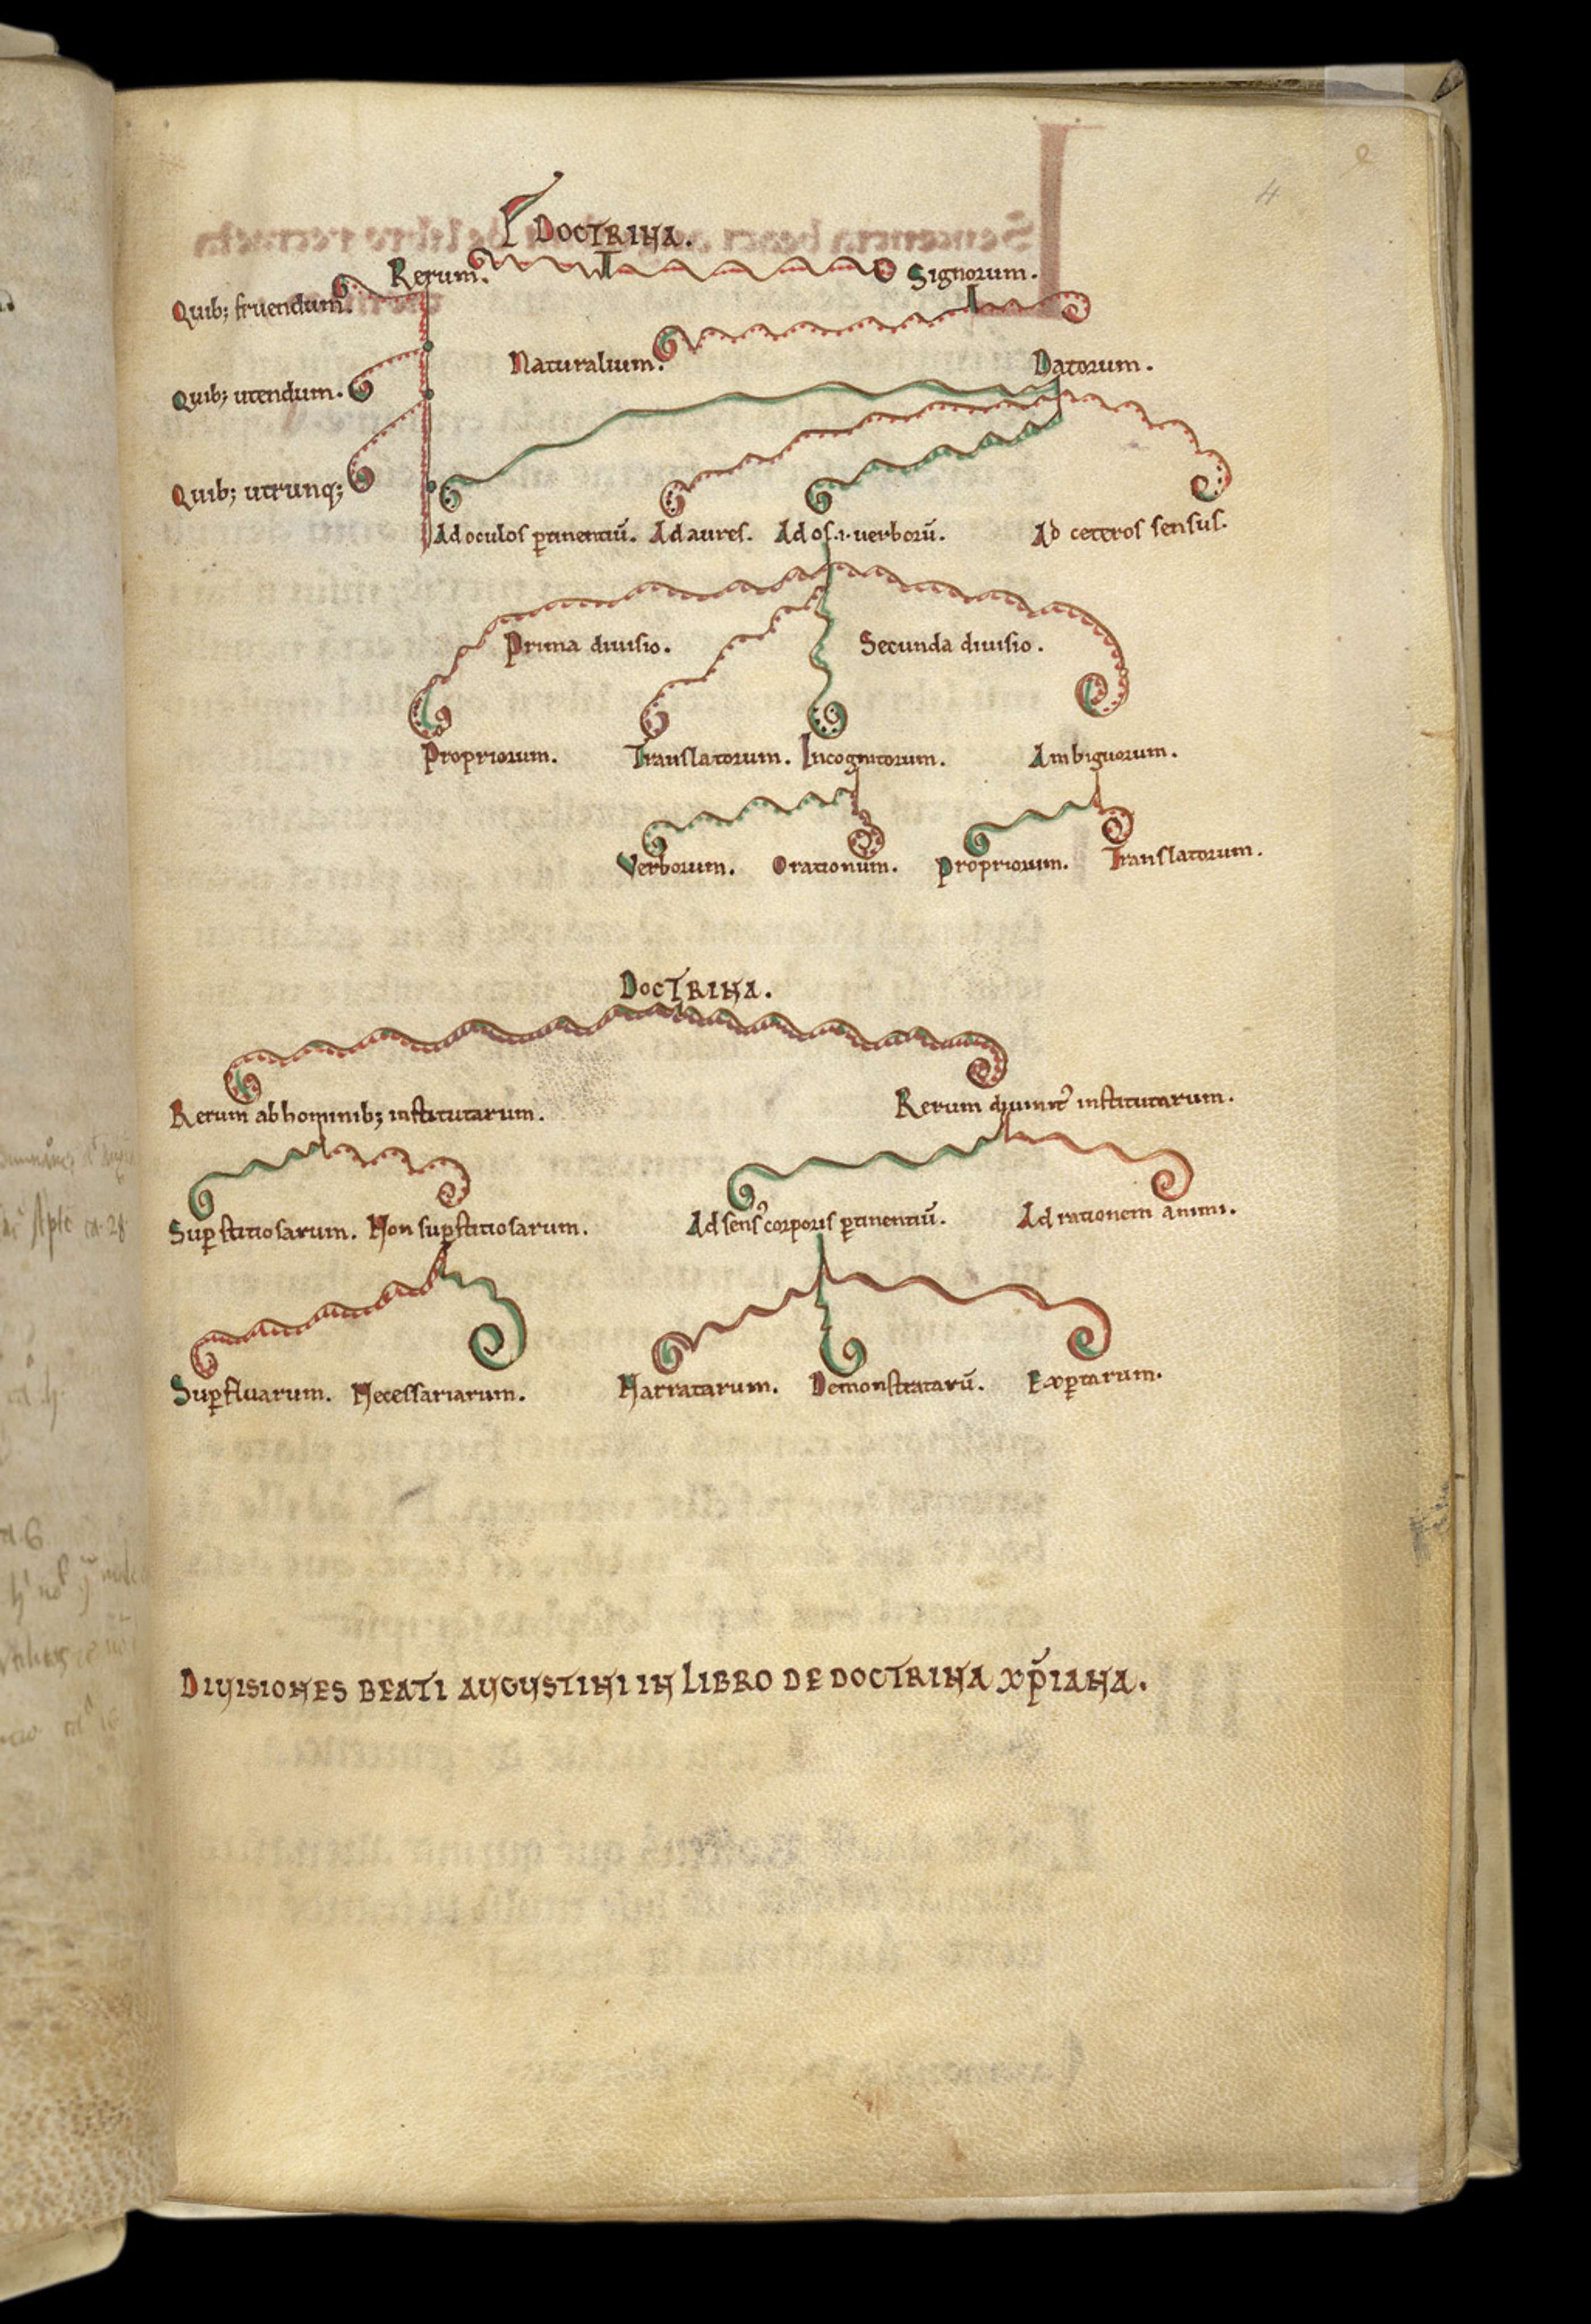 DOCTRINA.
Rerum. Signorum.
Quib; fruendum.
Naturalium. Datorum.
Quib; utendum.
Quib; utrunq;
Ad oculos ꝑtinentiū. Ad aures. Ad os .i. uerborū. Ad ceteros sensus.
Prima diuisio. Secunda diuisio.
Propriorum. Translatorum. Incognitorum. Ambiguorum.
Verborum. Orationum. Propriorum. Translatorum.
DOCTRINA.
Rerum ab hominib; institutarum. Rerum diuinit᷒ institutarum.
Suꝑstitiosarum. Non suꝑstitiosarum. Ad sens᷒ corporis ꝑtinentiū. Ad rationem animi.
Suꝑfluarum. Necessariarum. Narratarum. Demonstratarū. Exꝑtarum.
DIVISIONES BEATI AVGVSTINI IN LIBRO DE DOCTRINA XP̄IANA.
4